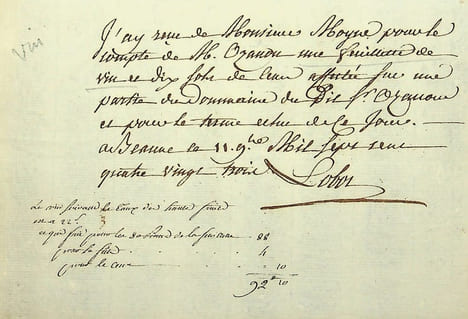 vin
J'ay recu de Monsieur Moyne pour le
compte de M. Ozanon une feuillette de
vin et dix sols de Cens affectée sur une
partie du Dommaine du Dit Sr. Ozanon
et pour le terme echu de Ce Jour.
a Beaune ce 11. 9bre Mil Sept cent
quatre vingt trois Lobot
Le vin suivant le taux de
en a 22#
ce qui fait pour les de la 88
pour la fute 4
pour le cens = 10
92# 10